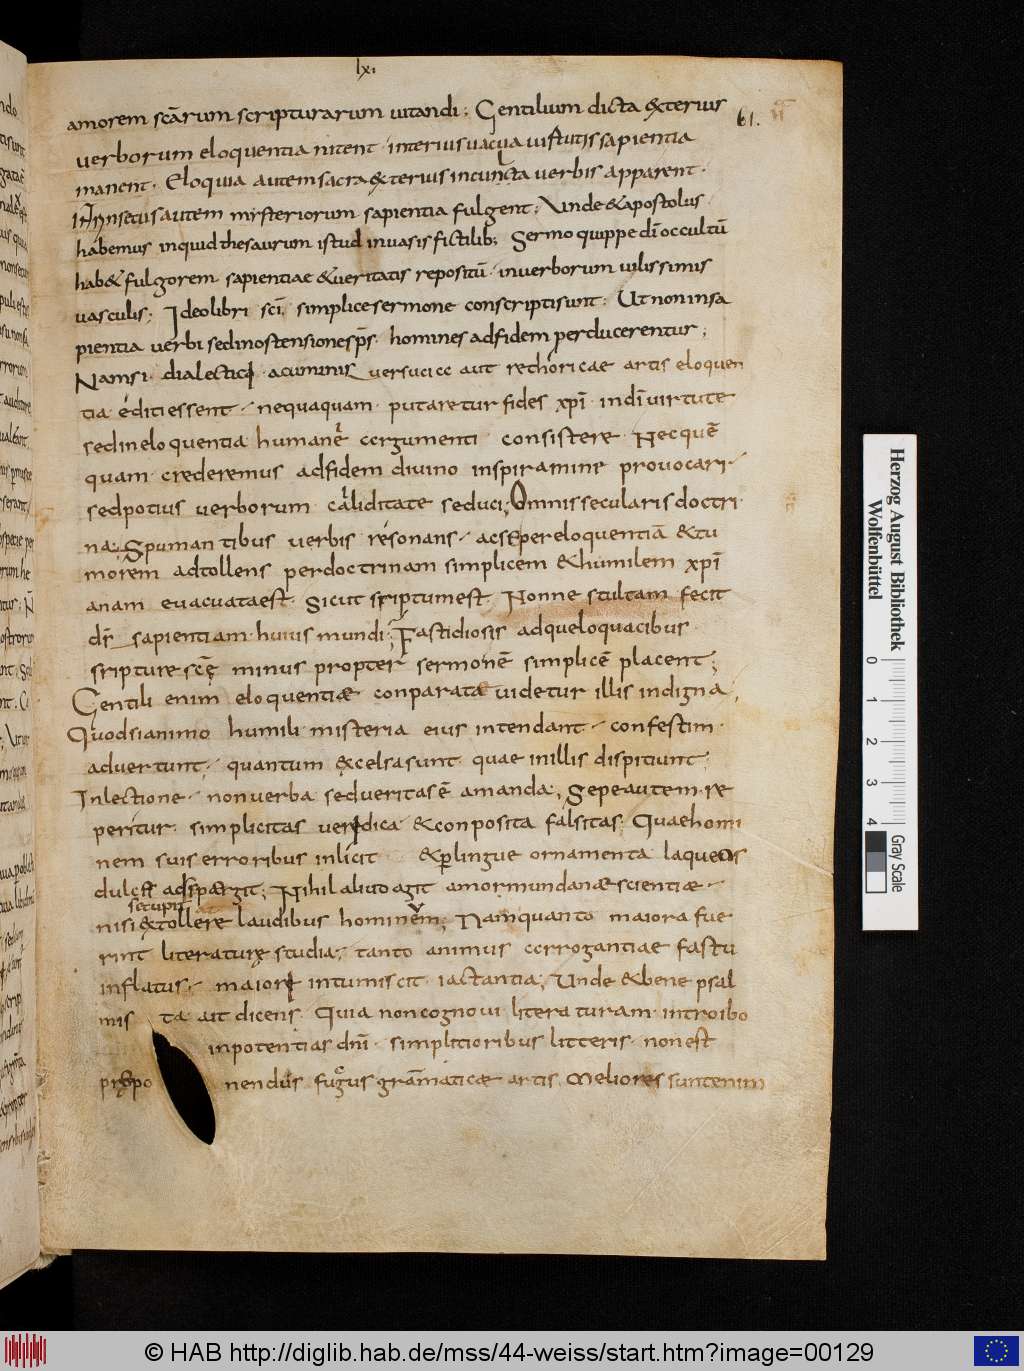 lxi
amorem scārum scripturarum uitandi; Gentilium dicta &terius
61.
uerborum eloquentia nitent · interius uacua uirtutis sapientia
manent · Eloquia autem sacra &terius incūpta uerbis apparent ·
Intrinsecus autem mysteriorum sapientia fulgent; Unde & apostolus
habemus inquid thesaurum istud in uasis fictilib; Sermo quippe dī occultū
hab& fulgorem sapientiae & ueritatis repositū · in uerborum uilissimis
uasculis; Ideo libri scī simplice sermone conscripti sunt · Ut non in sa
pientia uerbi sed in ostensione sp̄s · homines ad fidem perducerentur;
Nam si · dialectici · acuminis uersucia aut rethoricae artis eloquen
tia editi essent · nequaquam · putaretur fides xp̄i · in dī uirtute
sed in eloquentia humanę argumenti consistere · Nec quē
quam · crederemus ad fidem diuino inspiramine prouocari ·
sed potius uerborum calliditate seduci; Omnis secularis doctri
na; Spumantibus uerbis resonans · ac se per eloquentiā & tu
morem adtollens per doctrinam simplicem & humilem xp̄i
anam euacuata est · Sicut scriptum est · Nonne stultam fecit
dr̄ sapientiam huius mundi; Fastidiosis adque loquacibus
scripture scę minus propter sermonē simplicē placent;
Gentili enim eloquentiæ conparata uidetur illis indigna;
Quod si animo humili misteria eius intendant · confestim ·
aduertunt · quantum &celsa sunt quae in illis dispitiunt;
In lectione · non uerba sed ueritas ē amanda; Sepe autem re
peritur · simplicitas ueridica · & conposita falsitas; Quae homi
nem suis erroribus inlicit & p lingue ornamenta laqueos
dulces adspargit; Nihil aliud agit amor mundanæ scientiæ ·
se cupit
nisi &tollere laudibus hominem; Nam quanto maiora fue
rint literaturę studia; tanto animus arrogantiae fastu
inflatus · maiori intumiscit iactantia; Unde & bene psal
mis ta ait dicens · Quia non cognoui literaturam · introibo
in potentias dn̄i · simplicioribus litteris · non est
prepo nendus fugus grāmaticæ artis · Meliores sunt enim
Herzog August Bibliothek
Wolfenbüttel
0 1 2 3 4
Gray Scale
© HAB http://diglib.hab.de/mss/44-weiss/start.htm?image=00129